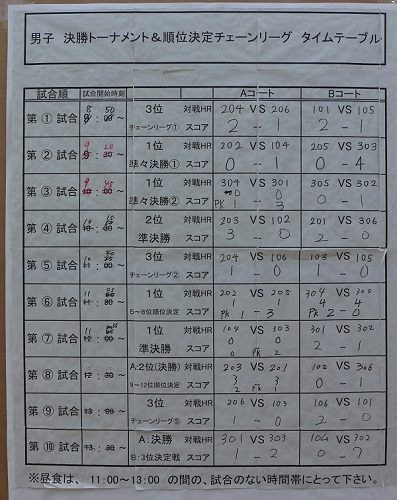 男子 決勝トーナメント&順位決定チェーンリーグ タイムテーブル
試合順 試合開始時刻 Aコート Bコート
第①試合 8:50~ 3位 対戦HR 204 VS 206 101 VS 105
チェーンリーグ① スコア 2 - 1 2 - 1
第②試合 9:20~ 1位 対戦HR 202 VS 104 205 VS 303
準々決勝① スコア 0 - 1 0 - 4
第③試合 9:45~ 1位 対戦HR 304 VS 301 305 VS 302
準々決勝② スコア 0 - 0 PK 1 - 3 0 - 1
第④試合 10:15~ 2位 対戦HR 203 VS 102 201 VS 306
準決勝 スコア 3 - 0 2 - 0
第⑤試合 10:40~ 3位 対戦HR 204 VS 106 103 VS 105
チェーンリーグ② スコア 1 - 0 1 - 0
第⑥試合 11:05~ 1位 対戦HR 202 VS 205 304 VS 305
5~8位順位決定 スコア 1 1 PK 1 - 3 4 4 PK 2 - 0
第⑦試合 11:~ 1位 対戦HR 104 VS 303 301 VS 302
準決勝 スコア 0 0 0 PK 2 2 - 1
第⑧試合 12:30~ A:2位(決勝) 対戦HR 203 VS 201 102 VS 306
9~12位順位決定 スコア 3 3 2 PK 1 0 - 1
第⑨試合 13:00~ 3位 対戦HR 206 VS 103 106 VS 101
チェーンリーグ⑤ スコア 1 - 0 2 - 0
第⑩試合 13:30~ A:決勝 対戦HR 301 VS 303 104 VS 302
B:3位決定戦 スコア 1 - 2 0 - 7
※昼食は、11:00~13:00 の間の、試合のない時間帯にとって下さい。